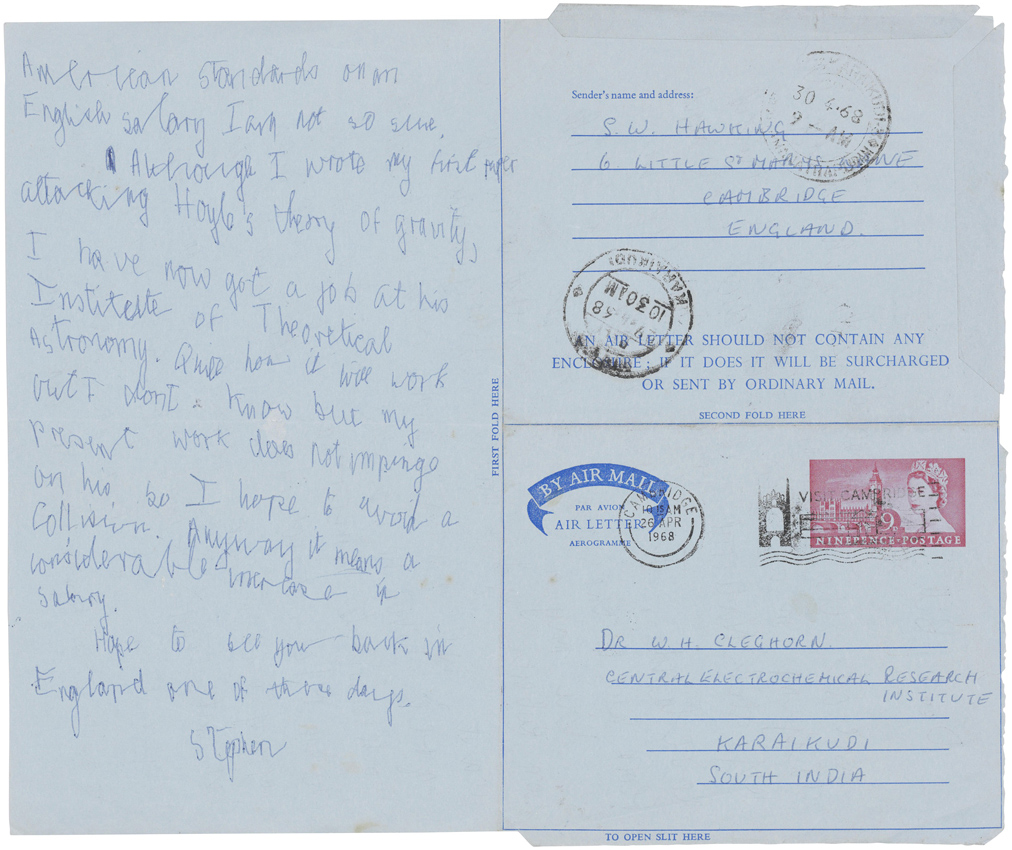 American standards on an
English salary I am not so sure.
Although I wrote my first paper
attacking Hoyle's theory of gravity,
I have now got a job at his
Institute of Theoretical
Astronomy. Quite how it will work
out I dont know but my
present work does not impinge
on his, so I hope to avoid a
Collision. Anyway it means a
considerable increase in
salary.
Hope to see you back in
England one of these days.
Stephen
FIRST FOLD HERE
Sender's name and address:
S.W. HAWKING
6. LITTLE ST MARYS LANE
CAMBRIDGE
ENGLAND.
30 4.68
9 - AM
KARAIKUDI
10 30 AM
AN AIR LETTER SHOULD NOT CONTAIN ANY
ENCLOSURE; IF IT DOES IT WILL BE SURCHARGED
OR SENT BY ORDINARY MAIL.
SECOND FOLD HERE
BY AIR MAIL
PAR AVION
AIR LETTER
AEROGRAMME
CAMBRIDGE
10 15 AM
26 APR
1968
VISIT CAMBRIDGE
9D
NINEPENCE·POSTAGE
DR W.H. CLEGHORN.
CENTRAL ELECTROCHEMICAL RESEARCH
INSTITUTE
KARAIKUDI
SOUTH INDIA
TO OPEN SLIT HERE